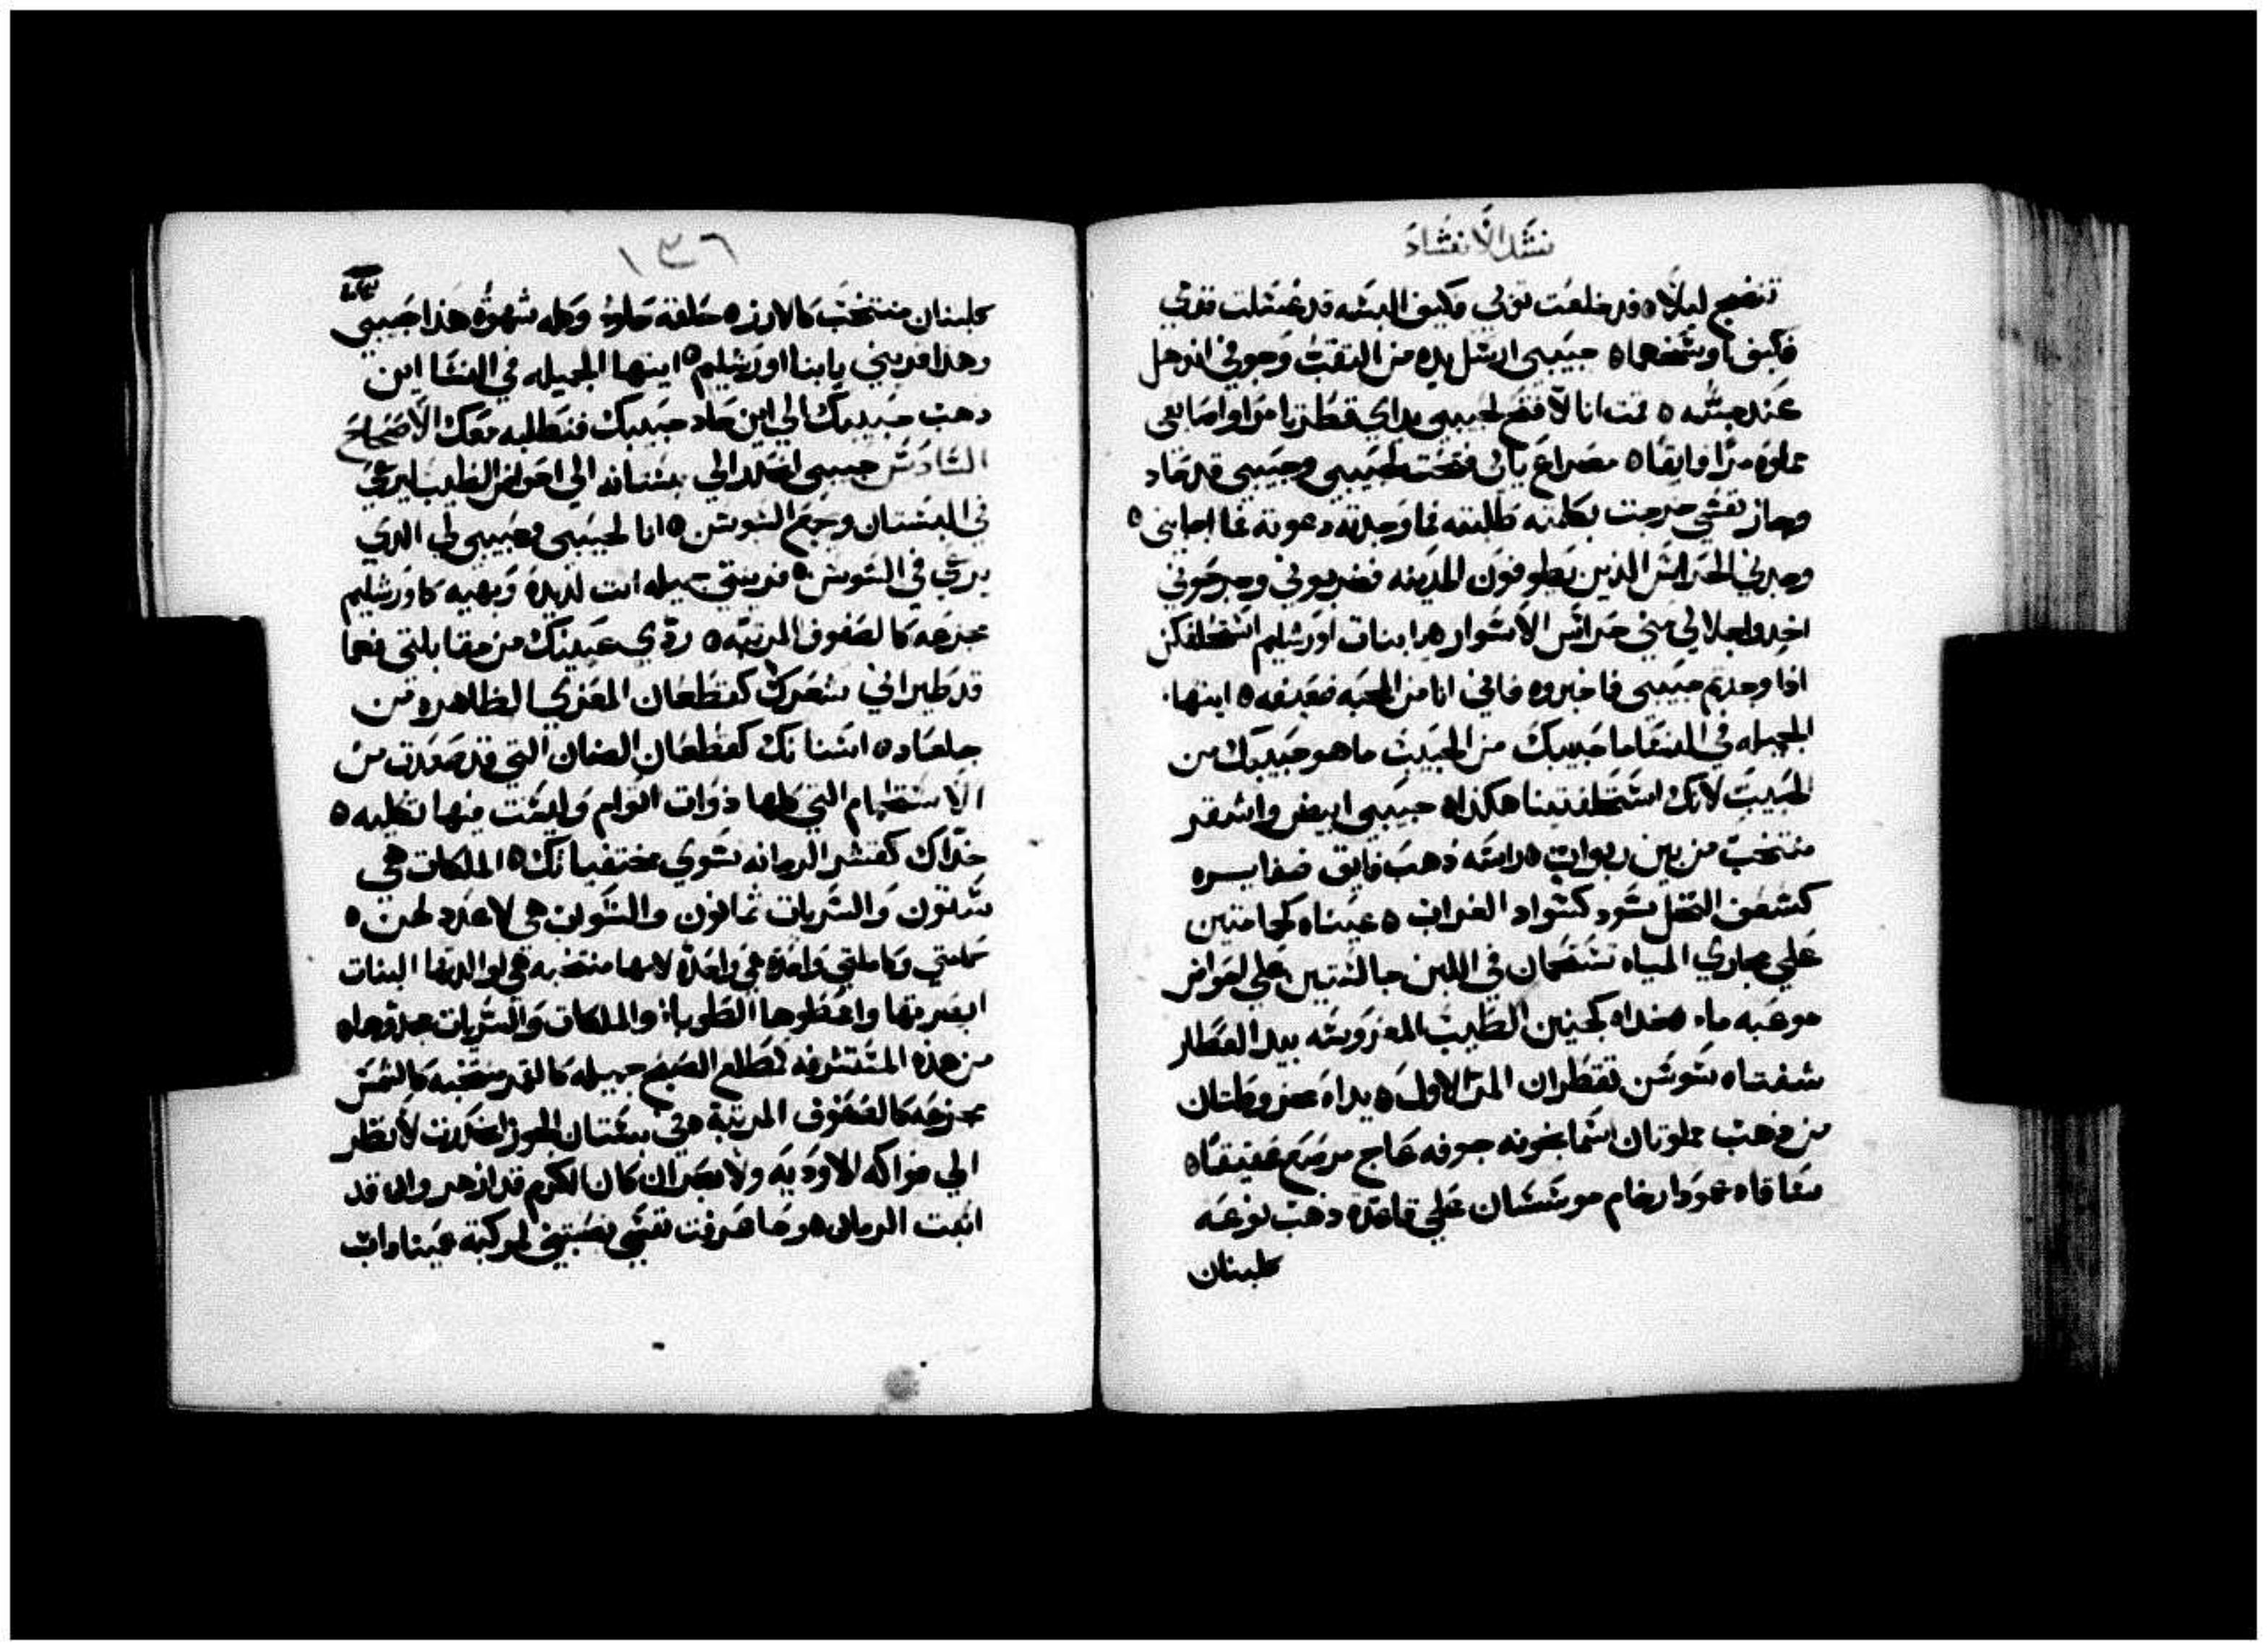 نشد الانشاد
تنضح ليلا ه قد خلعت ثوبي فكيف البسه قد غسلت قدمي
فكيف اوسخهما ه حبيبي ارسل يده من النقب وجوفي اندهل
عند مسه ه قمت انا لافتح لحبيبي يداي قطرتا مرا واصابعي
مملوه مرا فايقا ه مصراع بابي فتحت لحبيبي وحبيبي قد حاد
وجاز نفسي خرجت بكلمته طلبته فما وجدته دعوته فما اجابني ه
وجدني الحراس الذين يطوفون المدينه فضربوني وجرحوني
اخدوا جلالي مني حراس الاسوار هوا بنات اورشليم استحلفكن
اذا وجدتم حبيبي فاخبروه فاني انا من المحبه ضعيفه ه ايتها
الجميله في النسا ما حبيبك من الحبيب ما هو حبيبك من
الحبيب لانك استحلفتينا هكذا ه حبيبي ابيض واشقر
منتخب من بين ربوات ه راسه ذهب فايق ضفايره
كسعف النخل سود كسواد الغراب ه عيناه كحمامتين
علي مجاري المياه تستحمان في اللبن جالستين علي لوافر
موعبه ماء ه خداه كجنين الطيب المغروسه بيد العطار
شفتاه سوسن تقطران المر الاول ه يداه مخروطتان
من ذهب مملوتان اسمانجونه جوفه عاج مرصع عقيقا ه
ساقاه عمودا رخام موسسان علي قاعدة ذهب نوعه
كلبنان
١٣٦
كلبنان منتخب كالارز ه حلقه حلو وكله شهوة هذا حبيبي
وهذا قريبي يا بنات اورشليم ه ايتها الجميله في النسا اين
ذهب حبيبك الي اين حاد حبيبك فنطلبه معك الاصحاح
السادس حبيبي انحدر الي بستانه الي احواض الطيب ليرعي
في البستان وجمع السوسن ه انا لحبيبي وحبيبي لي الذي
يرعي في السوسن ه قريبتي جميله انت لذيذه وبهيه كاورشليم
مخوفه كالصفوف المرتبه ه ردي عينيك من مقابلتي فهما
قد طيراني شعرك كقطعان المعزي الظاهره من
جلعاد ه اسنانك كقطعان الضان التي قد صعدت من
الاستحمام التي كلها ذوات اتوام وليست فيها ثكليه ه
خداك كقشر الرمانه سوي مختفياتك ه الملكات هي
ستون والسريات ثمانون والشواب هي لا عدد لهن ه
حمامتي وكاملتي واحدة هي واحدة لامها منتخبه هي لوالدتها البنات
ابصرتها واعطوها الطوبا والملكات والسريات مدحوها ه
من هذه المستشرفه كطلع الصبح جميله كالقمر منتخبه كالشمس
مخوفه كالصفوف المرتبة ه في بستان الجوز انحدرت لانظر
الي فواكه الاوديه ولابصر ان كان الكرم قد ازهر وان قد
انبت الرمان ه وما عرفت نفسي نصبتني لمركبة عميناداب